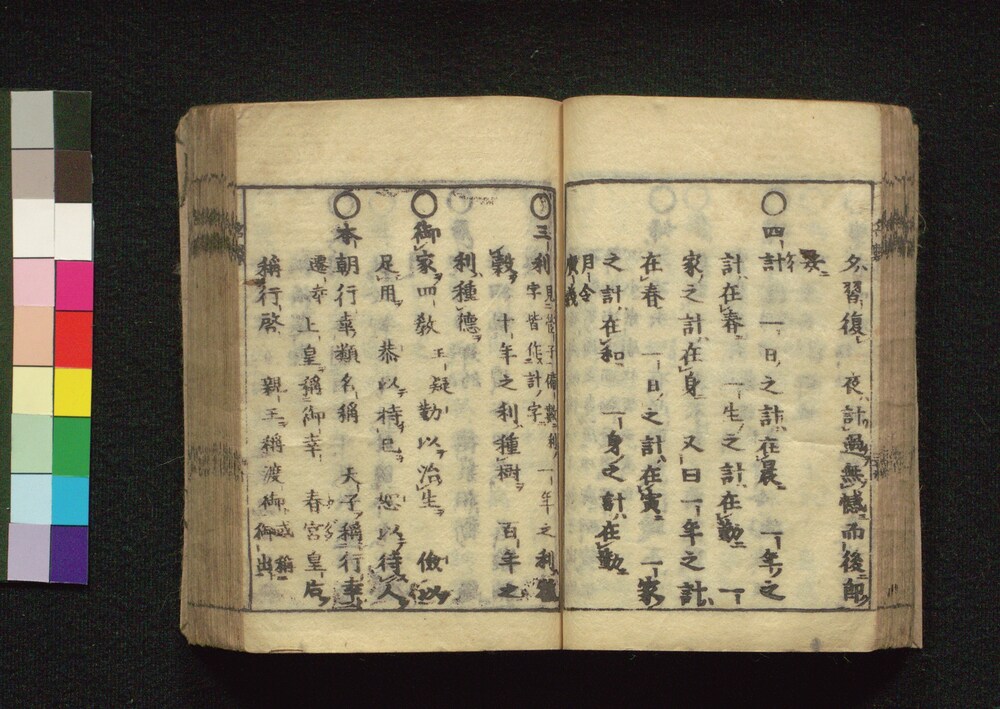 夕習復 夜計過無憾而後即
安
〇四計 一日之計在晨 一年之
計在春 一生之計在勤 一
家之計在身 又曰一年之計
在春 一日之計在寅 一家
之計在和 一身之計在勤
月令
廣義
〇三利 一年之利種
利字皆作計字
穀 十年之利種樹 百年之
利種德
〇御家四教 正疑 勤以治生 儉以
足用 恭以持己 恕以待人
〇本朝行幸類名稱 天子稱行幸
遷幸 上皇稱御幸 春宮皇后
稱行啓 親王稱渡御 或稱
御出